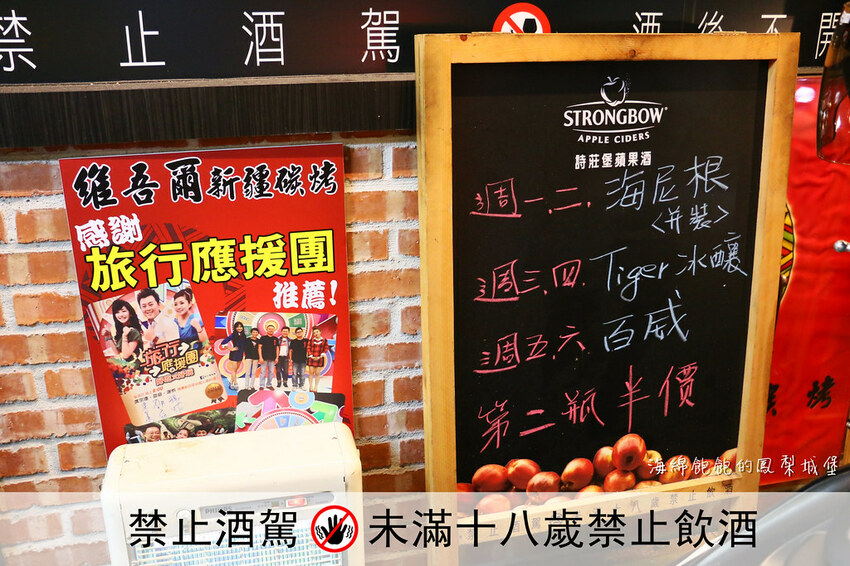 禁止酒駕
酒後不開
維吾爾新疆碳烤
感謝
旅行應援團
推薦!
旅行
應援團
STRONGBOW
APPLE CIDERS
詩莊堡蘋果酒
週一.二. 海尼根
<瓶裝>
週三.四. Tiger 冰釀
週五.六 百威
第二瓶半價
碳烤
海綿飽飽的鳳梨城堡
禁止酒駕 未滿十八歲禁止飲酒